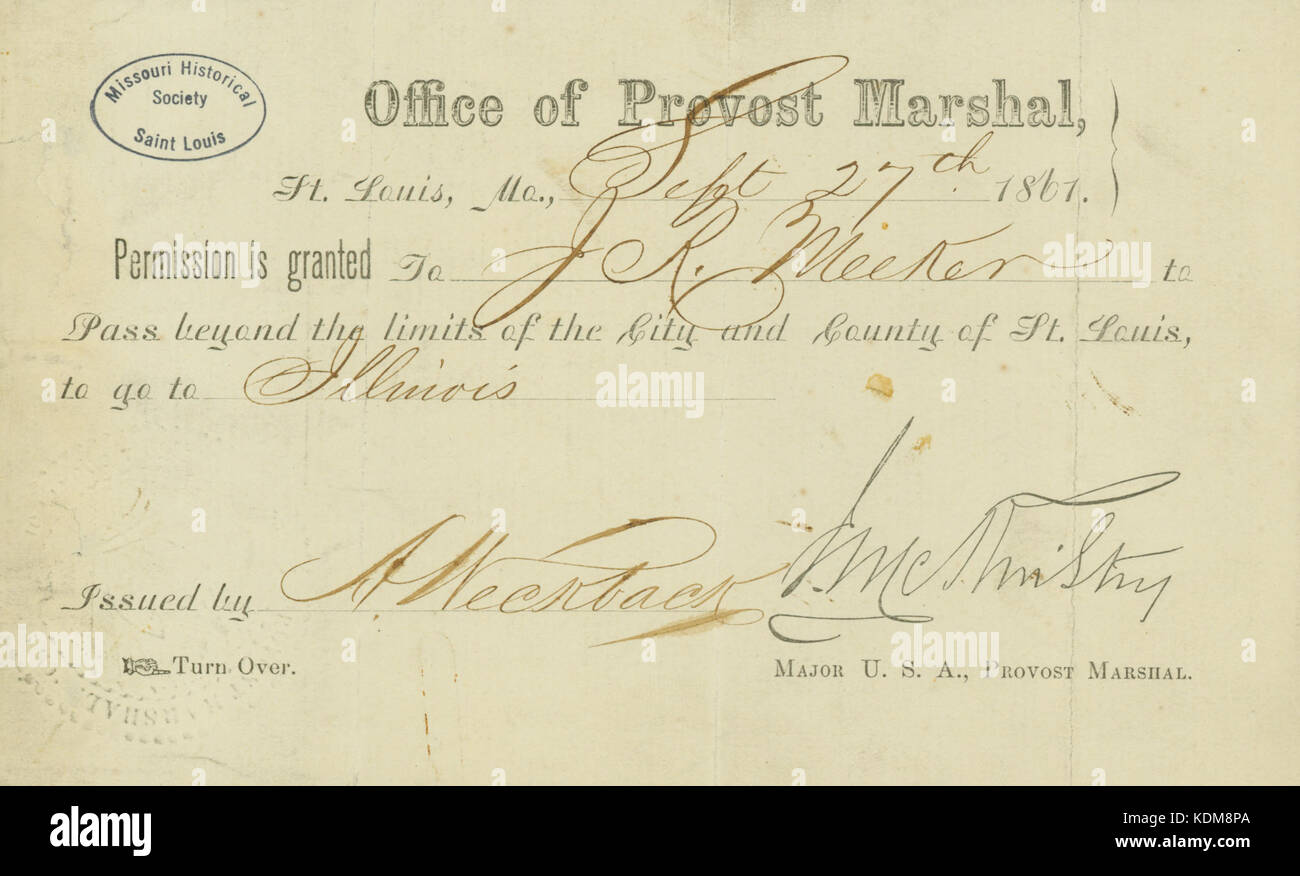 Missouri Historical
Society
Saint Louis
Office of Provost Marshal,
St. Louis, Mo., Sept 27th 1861.
Permission is granted To J. R. Meeker to
Pass beyond the limits of the City and County of St. Louis,
to go to Illinois
Issued by A Weckback J. McKinstry
Turn Over.
MAJOR U. S. A., PROVOST MARSHAL.
MARSHAL
alamy
a
a
alamy
Image ID: KDM8PA
www.alamy.com